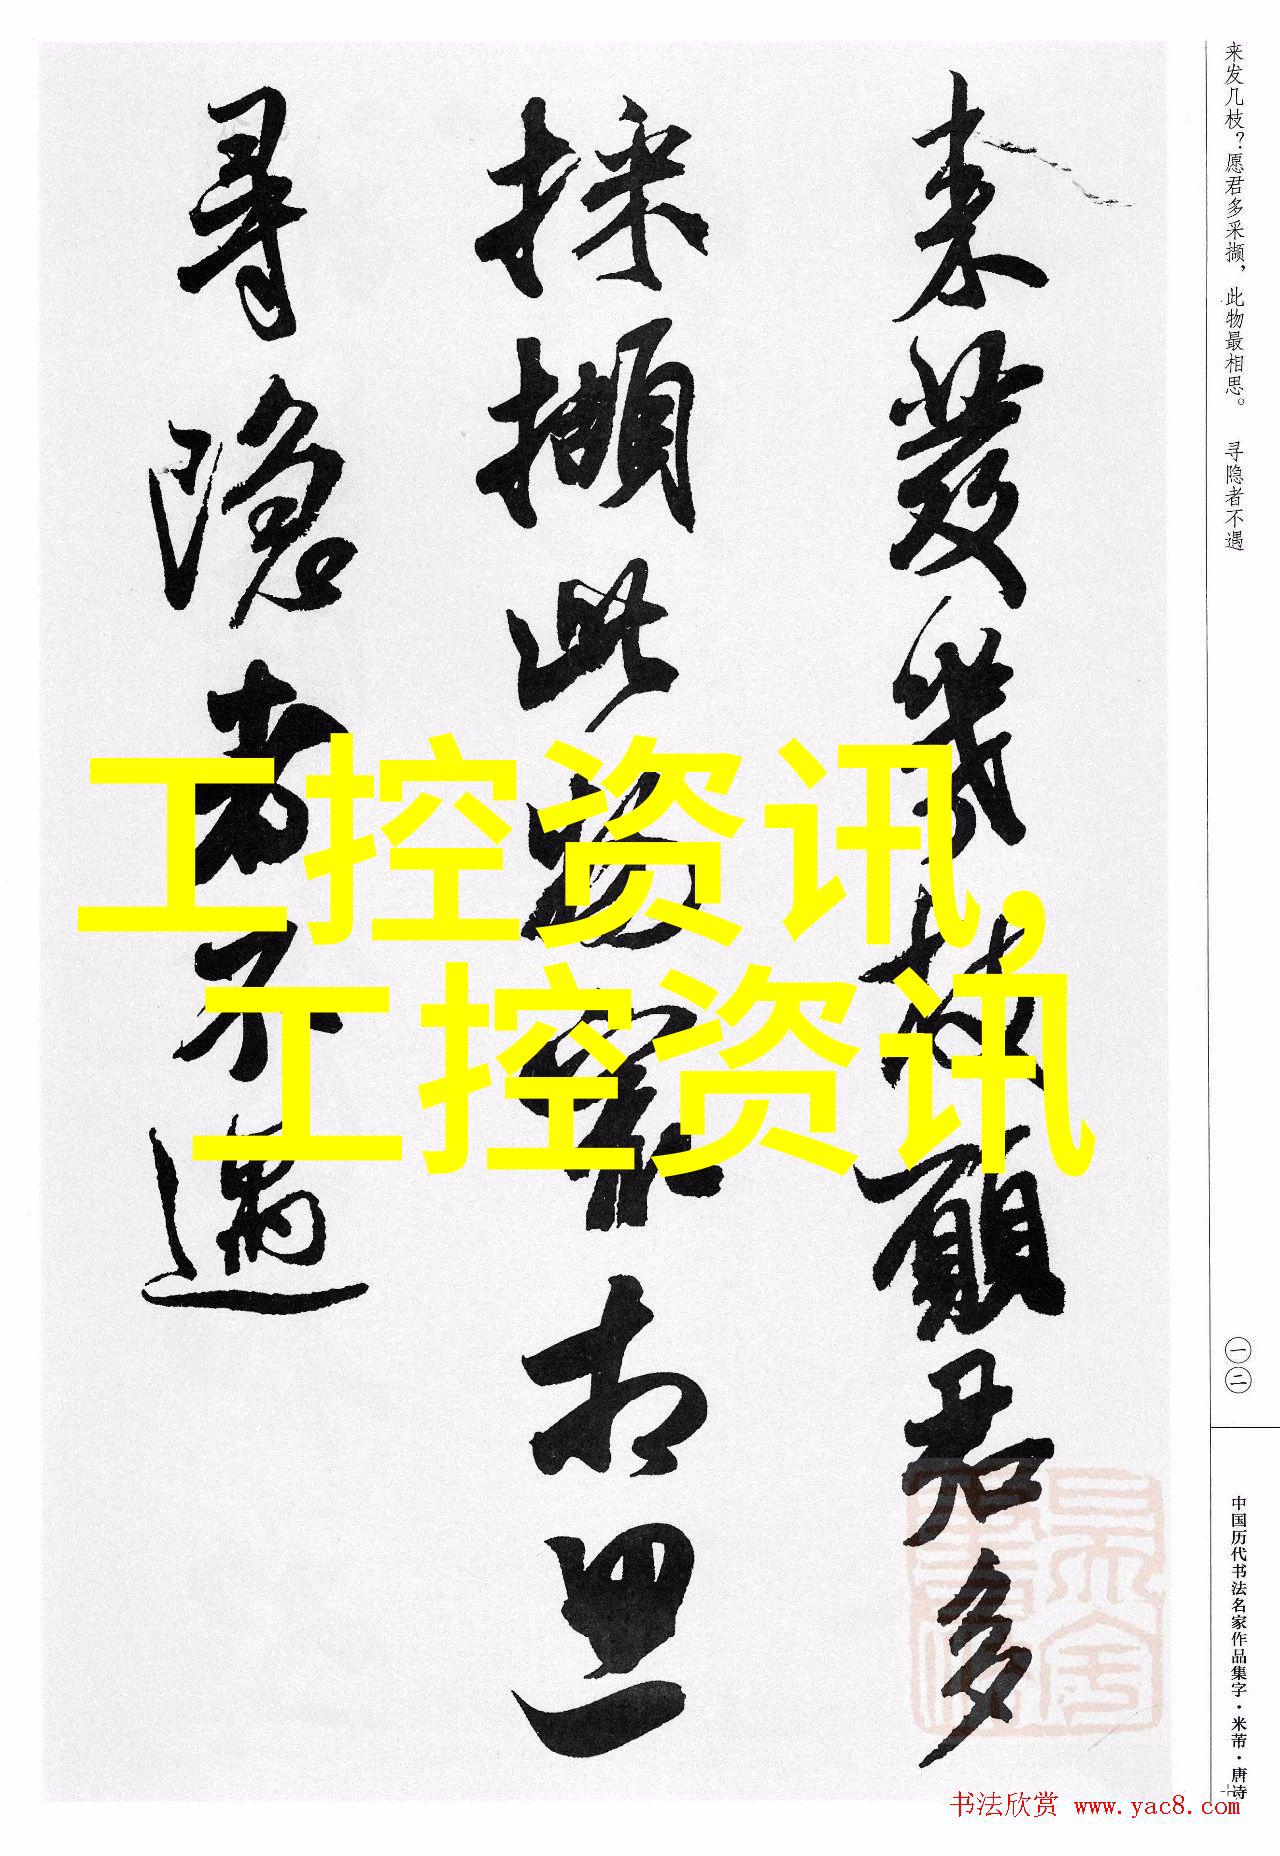 来发几枝？愿君多采撷，此物最相思。 寻隐者不遇
来發幾枝願君多
採擷此物最相思
尋隱者不遇
工控资讯,
工控资讯
一二
中国历代书法名家作品集字·米芾·唐诗
书法欣赏 www.yac8.com